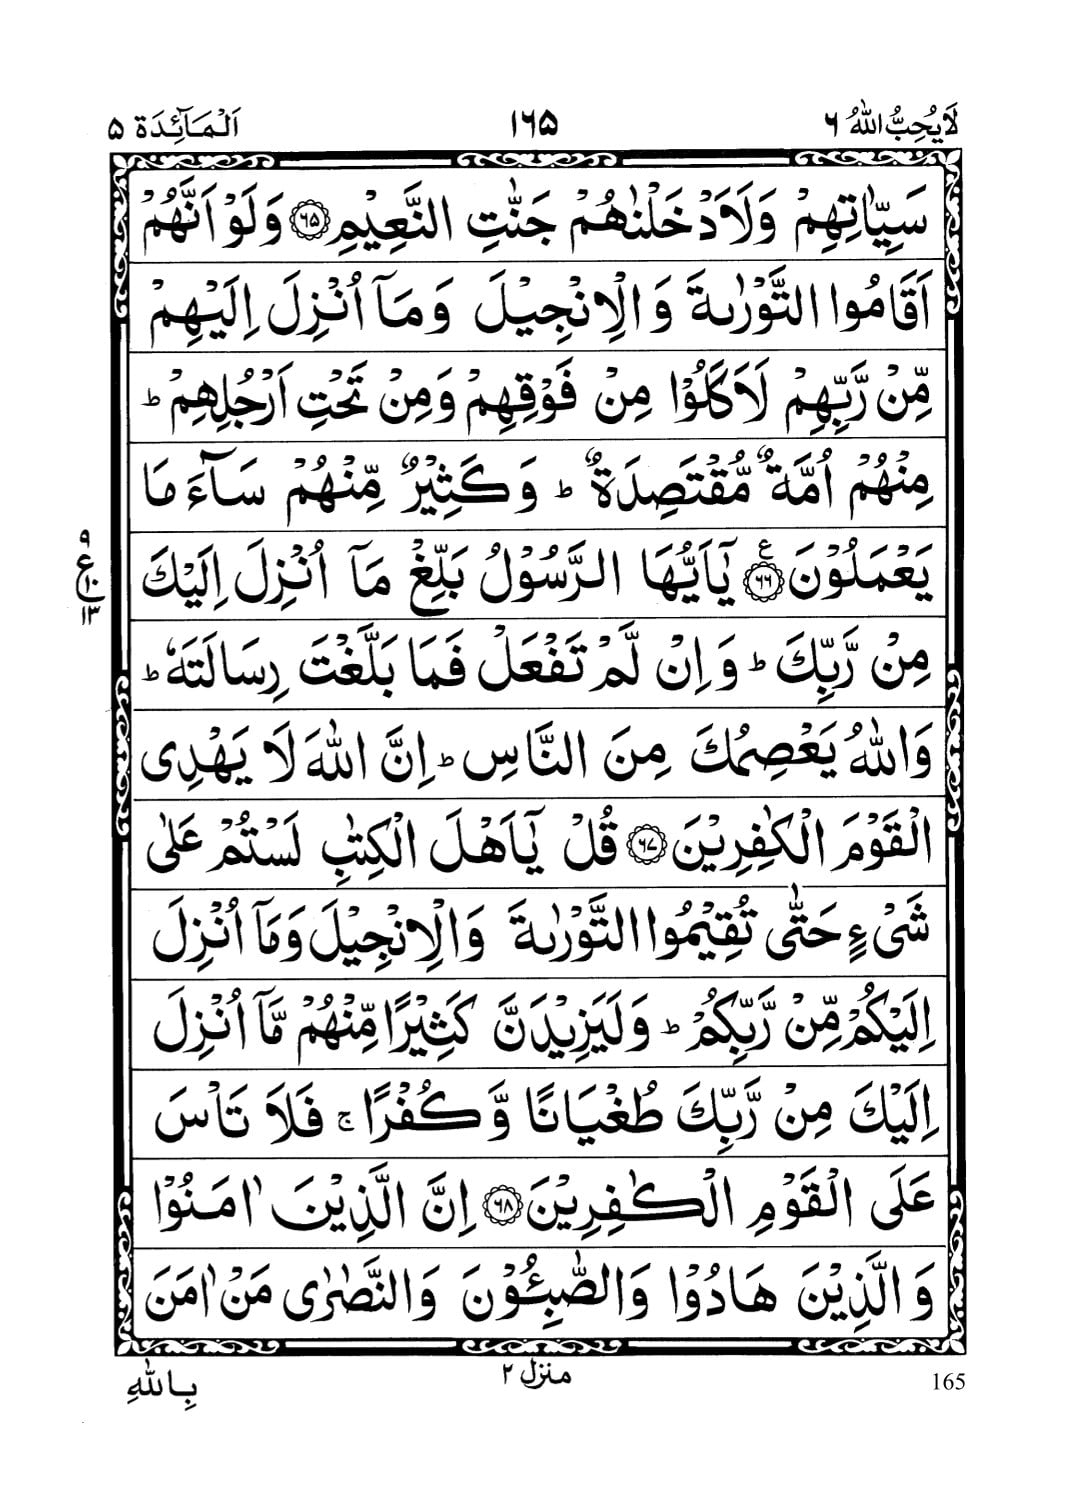 لَا يُحِبُّ اللهُ ٦
١٦٥
اَلْمَآئِدَة ٥
سَيِّاٰتِهِمْ وَلَاَدْخَلْنٰهُمْ جَنّٰتِ النَّعِيْمِ ﴿٦٥﴾ وَلَوْ اَنَّهُمْ
اَقَامُوا التَّوْرٰىةَ وَالْاِنْجِيْلَ وَمَآ اُنْزِلَ اِلَيْهِمْ
مِّنْ رَّبِّهِمْ لَاَكَلُوْا مِنْ فَوْقِهِمْ وَمِنْ تَحْتِ اَرْجُلِهِمْ ؕ
مِنْهُمْ اُمَّةٌ مُّقْتَصِدَةٌ ؕ وَكَثِيْرٌ مِّنْهُمْ سَآءَ مَا
يَعْمَلُوْنَ ﴿٦٦﴾ ع يٰۤاَيُّهَا الرَّسُوْلُ بَلِّغْ مَآ اُنْزِلَ اِلَيْكَ
٩
ع
١٠
١٣
مِنْ رَّبِّكَ ؕ وَاِنْ لَّمْ تَفْعَلْ فَمَا بَلَّغْتَ رِسَالَتَهٗ ؕ
وَاللهُ يَعْصِمُكَ مِنَ النَّاسِ ؕ اِنَّ اللهَ لَا يَهْدِى
الْقَوْمَ الْكٰفِرِيْنَ ﴿٦٧﴾ قُلْ يٰۤاَهْلَ الْكِتٰبِ لَسْتُمْ عَلٰى
شَىْءٍ حَتّٰى تُقِيْمُوا التَّوْرٰىةَ وَالْاِنْجِيْلَ وَمَآ اُنْزِلَ
اِلَيْكُمْ مِّنْ رَّبِّكُمْ ؕ وَلَيَزِيْدَنَّ كَثِيْرًا مِّنْهُمْ مَّآ اُنْزِلَ
اِلَيْكَ مِنْ رَّبِّكَ طُغْيَانًا وَّكُفْرًا ۚ فَلَا تَاْسَ
عَلَى الْقَوْمِ الْكٰفِرِيْنَ ﴿٦٨﴾ اِنَّ الَّذِيْنَ اٰمَنُوْا
وَالَّذِيْنَ هَادُوْا وَالصّٰبِئُوْنَ وَالنَّصٰرٰى مَنْ اٰمَنَ
بِاللهِ
منزل ٢
165